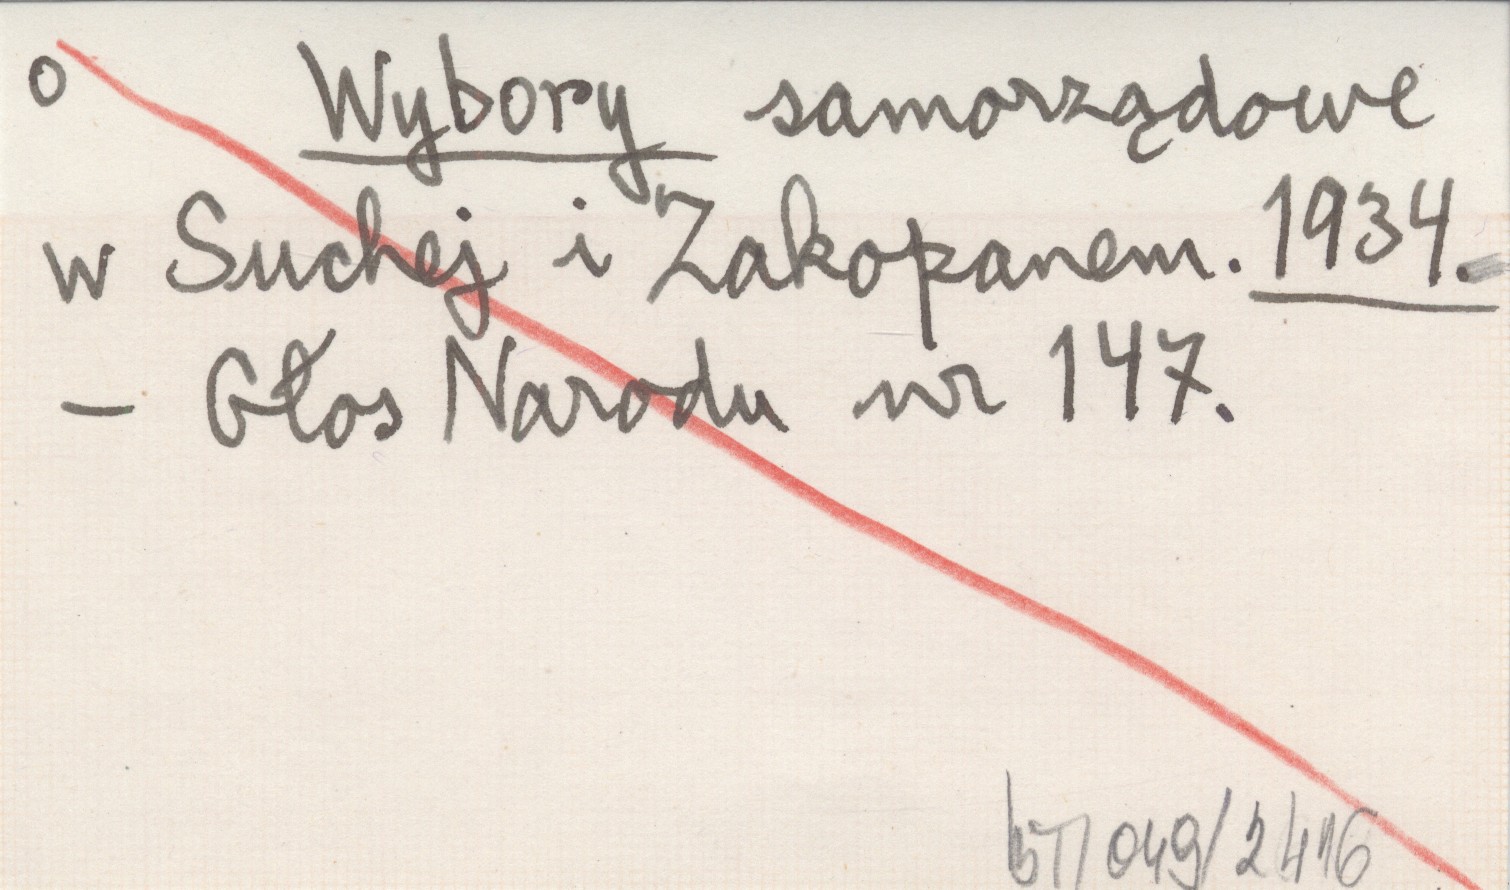 o Wybory samorządowe
w Suchej i Zakopanem. 1934.
– Głos Narodu nr 147.
049/2416